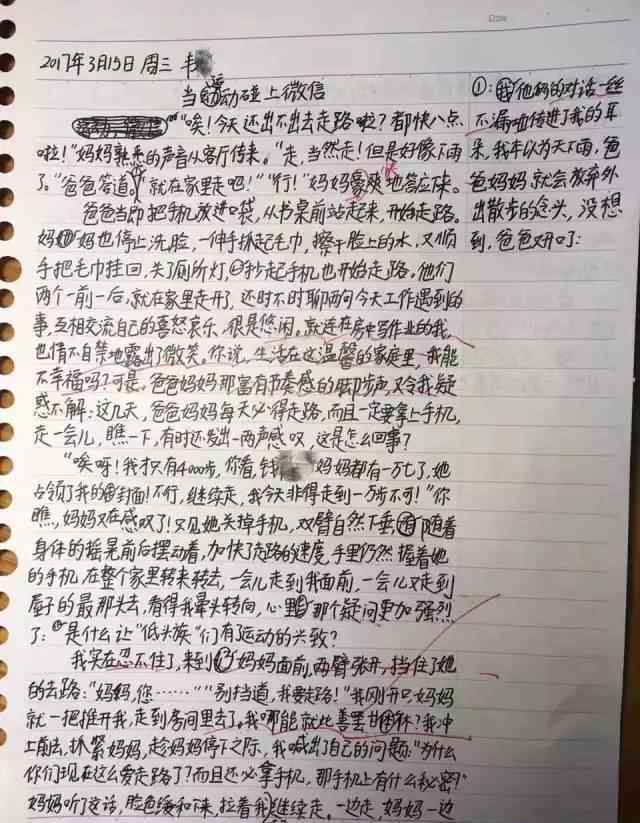 Date
2017年3月15日 周三 韦
当运动碰上微信
"唉!今天还出不出去走路啦?都快八点
啦!"妈妈熟悉的声音从客厅传来。"走,当然走!但是好像下雨
了。"爸爸答道,"就在家里走吧!""行!"妈妈豪爽地答应下来。
爸爸当即把手机放进口袋,从书桌前站起来,开始走路。
妈妈也停止洗脸,一伸手抓起毛巾,擦干脸上的水,又顺
手把毛巾挂回,关了厕所灯,抄起手机也开始走路。他们
两个一前一后,就在家里走开了,还时不时聊两句今天工作遇到的
事,互相交流自己的喜怒哀乐,很是悠闲。就连在房中写作业的我,
也情不自禁地露出了微笑。你说,生活在这温馨的家庭里,我能
不幸福吗?可是,爸爸妈妈那富有节奏感的脚步声,又令我疑
惑不解:这几天,爸爸妈妈每天必得走路,而且一定要拿上手机,
走一会儿,瞧一下,有时还发出一两声感叹,这是怎么回事?
"唉呀!我才只有4000步,你看,钱妈妈都有一万七了,她
占领了我的封面!不行,继续走,我今天非得走到一万步不可!"你
瞧,妈妈又在感叹了!又见她关掉手机,双臂自然下垂,随着
身体的摇晃前后摆动着,加快了走路的速度,手里仍然握着她
的手机,在整个家里转来转去,一会儿走到我面前,一会儿又走到
屋子的最那头去,看得我晕头转向,心里那个疑问更加强烈
了:是什么让"低头族"们有了运动的兴致?
我实在忍不住了,来到妈妈面前,两臂张开,挡住了她
的去路:"妈妈,您……""别挡道,我要走路!"我刚开口,妈妈
就一把推开我,走到房间里去了。我哪能就此善罢甘休?我冲
上前去,抓紧妈妈,趁妈妈停下之际,我喊出了自己的问题:"为什么
你们现在这么爱走路了?而且还必拿手机,那手机上有什么秘密?"
妈妈听了这话,脸色缓和下来,拉着我继续走。一边走,妈妈一边
①:他俩的对话一丝
不漏地传进了我的耳
朵,我本以为天下雨,爸
爸妈妈就会放弃外
出散步的念头,没想
到,爸爸又开口了: